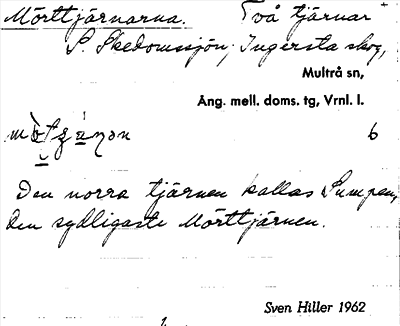 Mörttjärnarna. Två tjärnar
S. Skedomssjön, Ingersta skog,
Multrå sn,
Ång. mell. doms. tg, Vrnl. l.
6
Den norra tjärnen kallas Sumpen,
den sydligaste Mörttjärnen.
Sven Hiller 1962